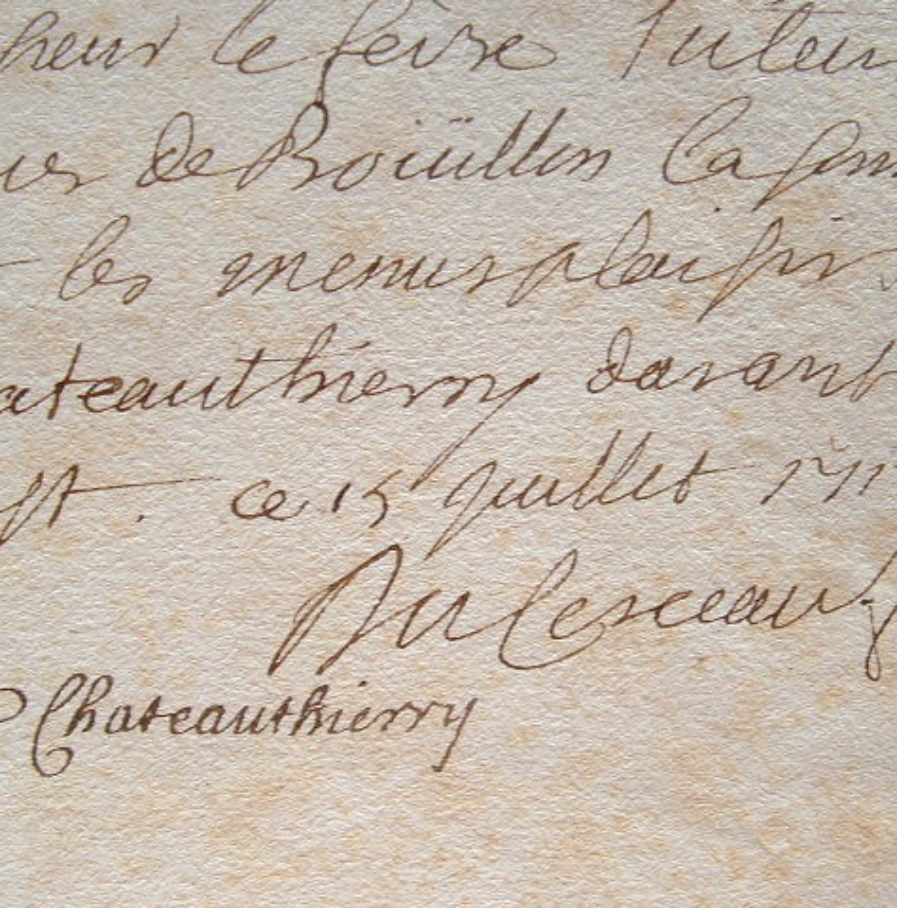 sieur le feire Tuteur
de Boüillon la som
les menus plaisirs
ateauthierry
ce 15 juillet 1711
Du Cerceau
Chateauthierry